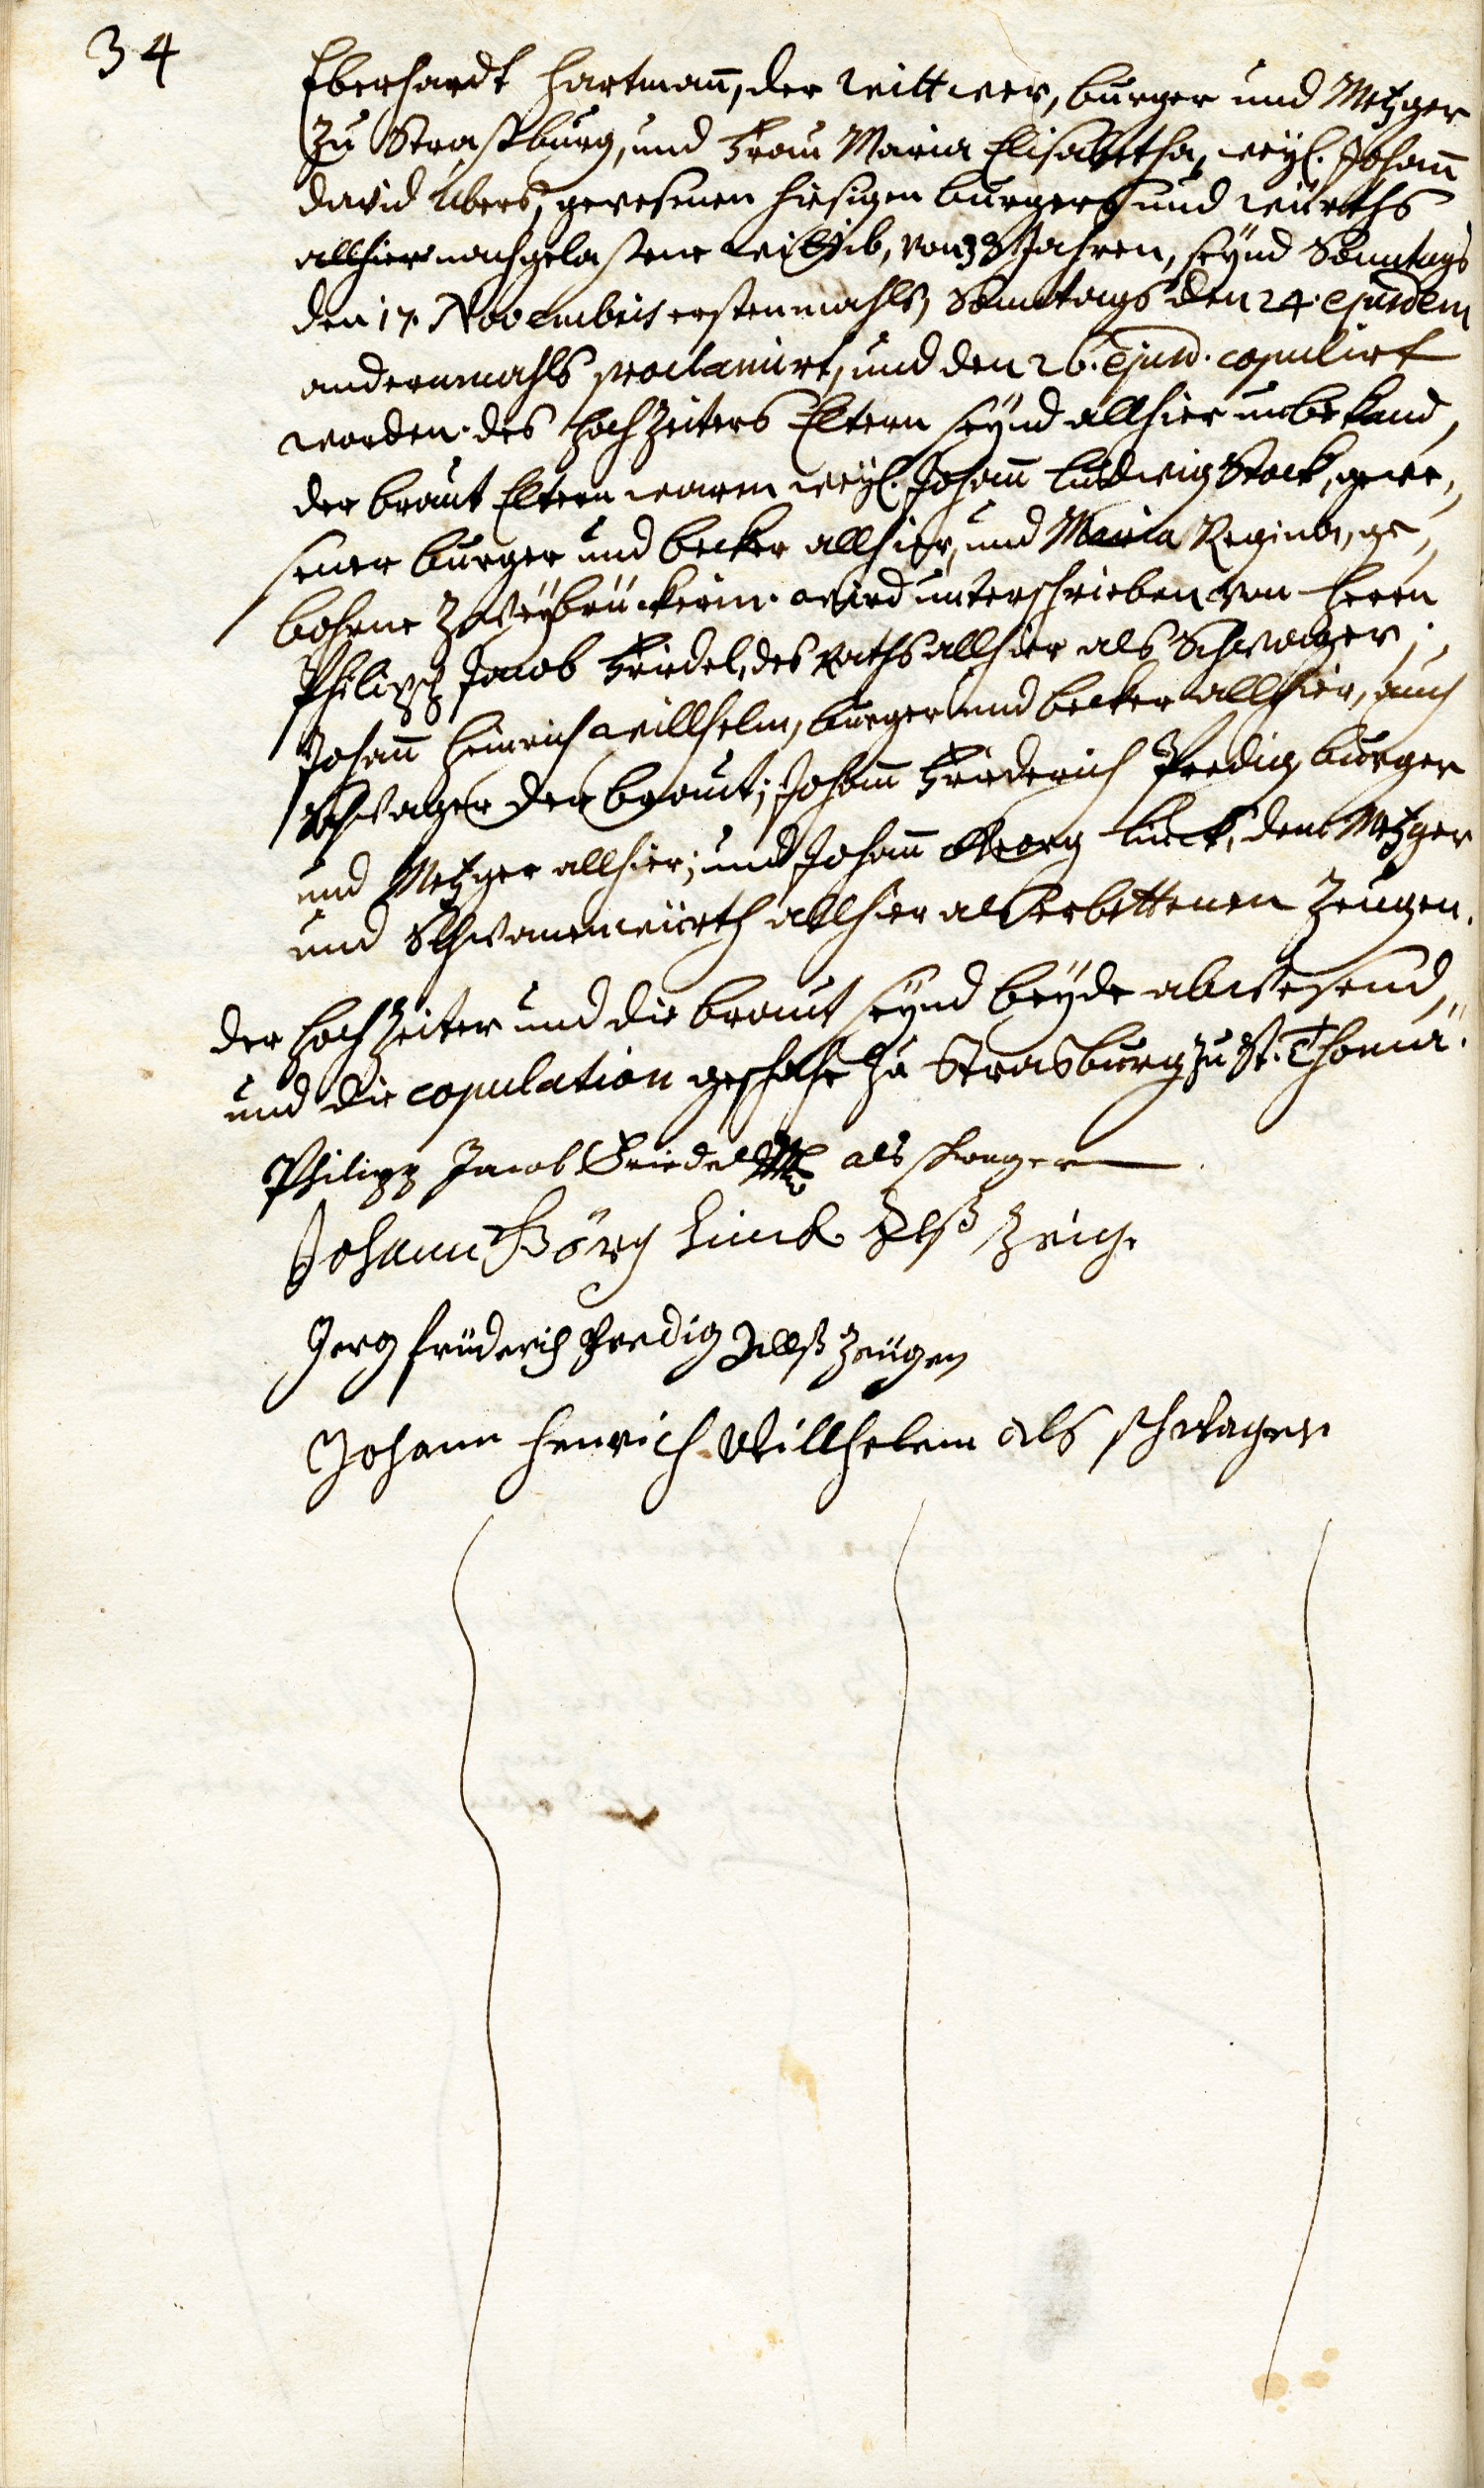 34
Eberhardt Hartmañ, der Wittwer, burger und Metzger
zu Straßburg, und Frau Maria Elisabetha, weyl. Johañ
David Ubers, gewesenen hiesigen burgers und Würths
allhier nachgelaßene Wittib, von 38 Jahren, seynd Sonntags
den 17. Novembris erstenmahls, Sonntags den 24. ejusdem
andernmahls proclamirt, und den 26. ejusd. copulirt
worden. des Hochzeiters Eltern seynd allhier unbekand,
der braut Eltern waren weyl. Johañ Ludwig Stock, gewe,,
sener burger und becker allhier, und Maria Regina, ge,,
bohrne Zweybrückerin. wird unterschrieben von Herrn
Philipp Jacob Friedel, des Raths allhier als Schwager;
Johañ Heinrich Willhelm, burger und becker allhier, auch
Schwager der braut; Johann Friederich Predig burger
und Metzger allhier; und Johañ Georg Linck, dem Metzger
und Schwanenwürth allhier als erbettenen Zeugen.
der Hochzeiter und die braut seynd beyde abwesend,
und die copulation geschahe zu Strasburg zu St. Thomä.
Philipp Jacob Friedel als schwager
Johann Görg Linck Alß Zeig.
Jerg friderich Predig Allß Zeügen
Johann Henrich Willhelem als schwager